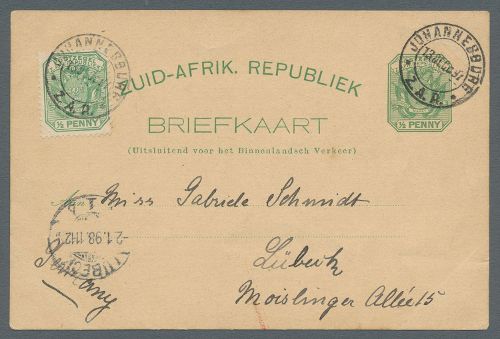 JOHANNESBURG
Z.A.R.
½ PENNY
JOHANNESBURG
Z.A.R.
½ PENNY
ZUID-AFRIK. REPUBLIEK
BRIEFKAART
(Uitsluitend voor het Binnenlandsch Verkeer)
Aan Miss Gabriele Schmidt
Lübeck
Moislinger Allée 15
-2.1.98. 11-12
LÜBECK
Germany